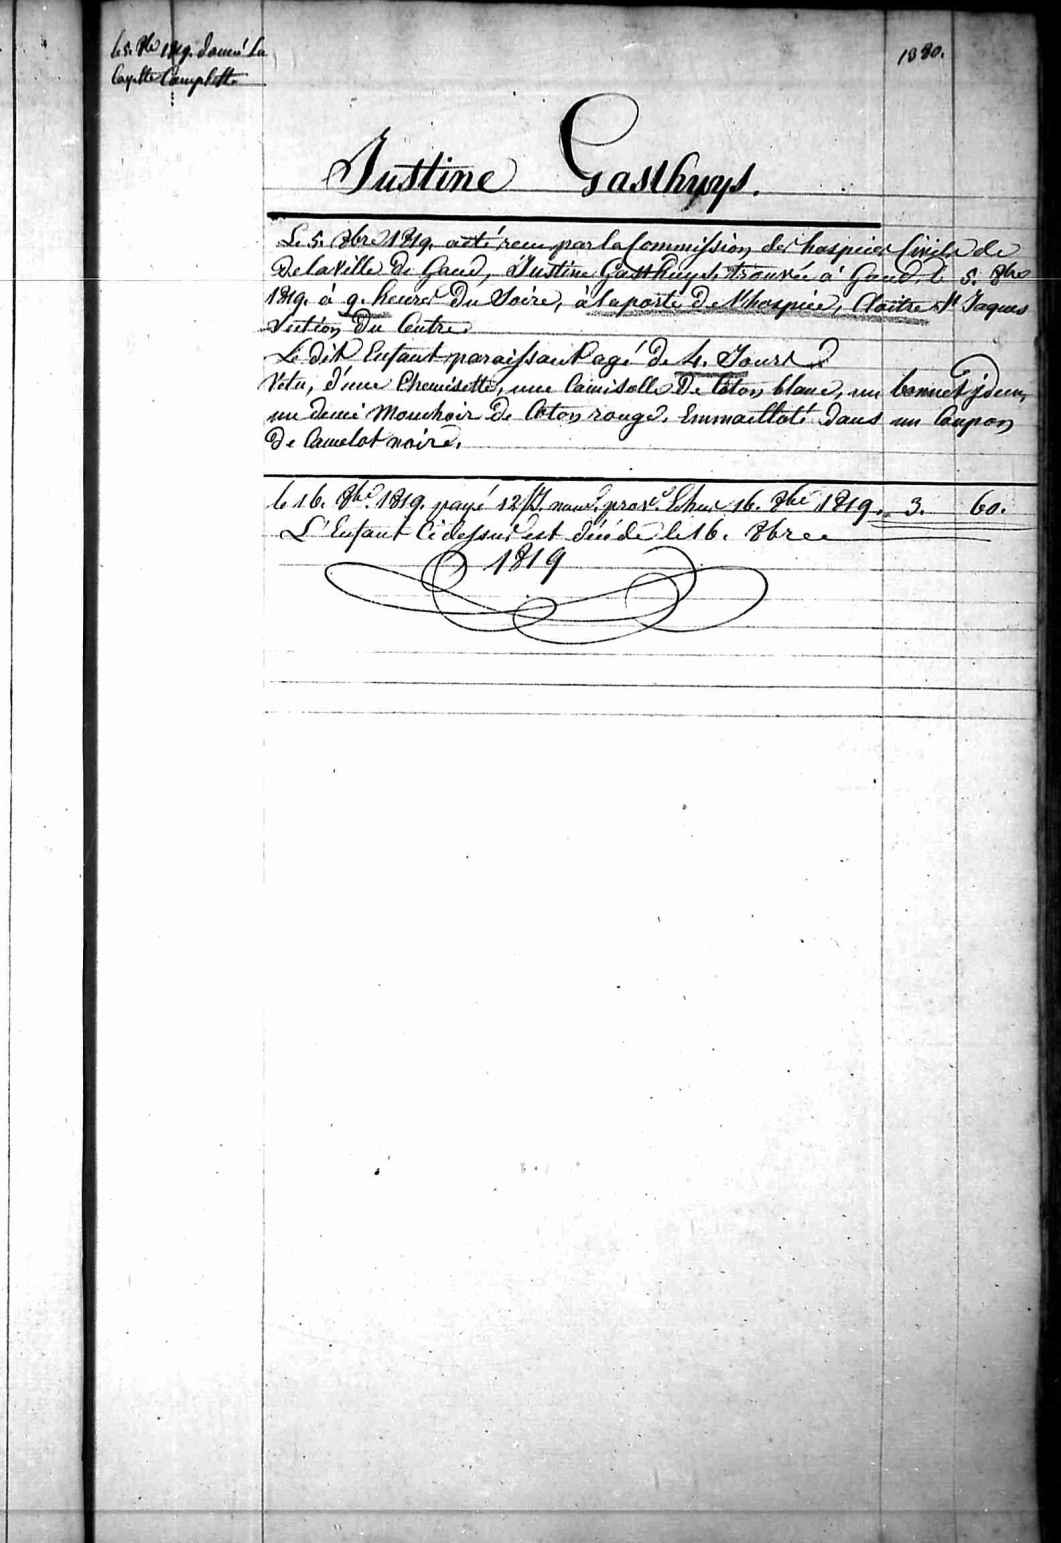 le 5. 8bre 1819. donné La
Cayette Complette
1880.
Justine Gasthuys.
Le 5. 8bre 1819. a été recu par la Commission des hospices Civils de
De la Ville De Gand, Justine Gasthuys. trouvée à Gand, le 5. 8bre
1819. à 9. heures Du Soire, à la porte De l'hospice, Cloitre St Jaques
Section Du Centre
Le dit Enfant paraissant agé De 4. Jours
Vetu, d'une Chemisette, une Camisolle De Coton blanc, un bonnet idem,
un demi Mouchoir De Coton rouge. Emmailloté Dans un Coupon
De Camelot noire.
le 16. 8bre. 1819. payé 12 16. 8bre 1819. 3. 60.
L'Enfant Ci dessus est décédé le 16. 8bre
1819